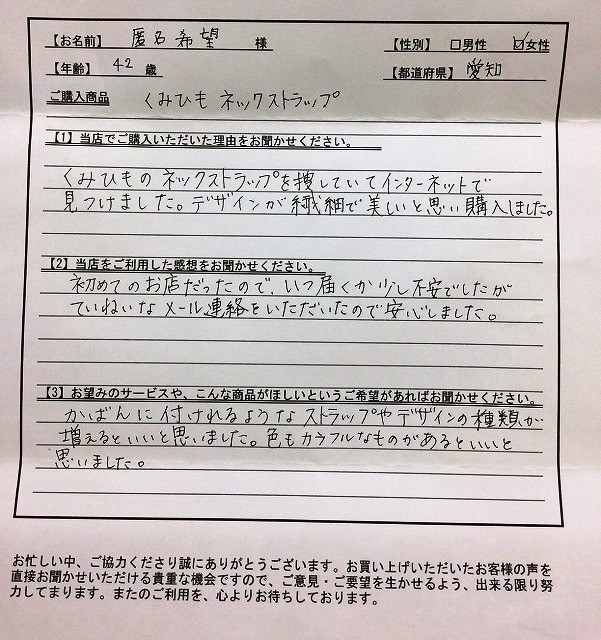 【お名前】 匿名希望 様 【性別】 □男性 ☑女性
【年齢】 42 歳 【都道府県】 愛知
ご購入商品 くみひも ネックストラップ
【1】当店でご購入いただいた理由をお聞かせください。
くみひもの ネックストラップを捜していてインターネットで
見つけました。デザインが繊細で美しいと思い購入しました。
【2】当店をご利用した感想をお聞かせください。
初めてのお店だったので、いつ届くか少し不安でしたが
ていねいな メール連絡をいただいたので安心しました。
【3】お望みのサービスや、こんな商品がほしいというご希望があればお聞かせください。
かばんに付けれるような ストラップや デザインの種類が
増えるといいと思いました。色もカラフルなものがあるといいと
思いました。
お忙しい中、ご協力くださり誠にありがとうございます。お買い上げいただいたお客様の声を
直接お聞かせいただける貴重な機会ですので、ご意見・ご要望を生かせるよう、出来る限り努
力してまります。またのご利用を、心よりお待ちしております。